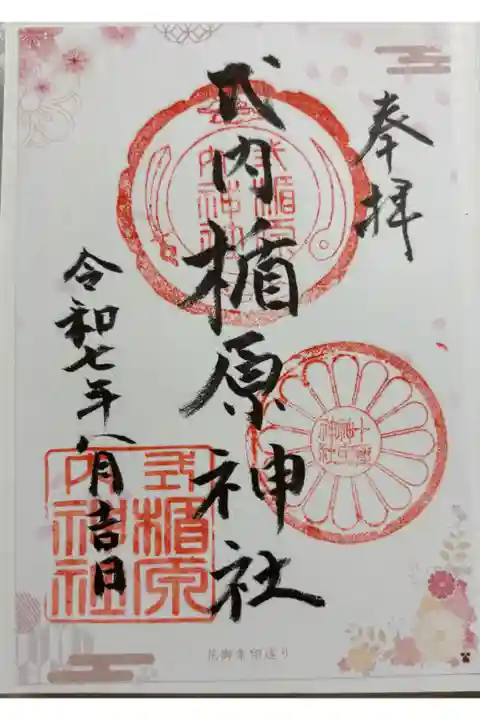 奉拝
式内楯原神社
令和七年八月吉日
式楯原
内神社
花御朱印巡り